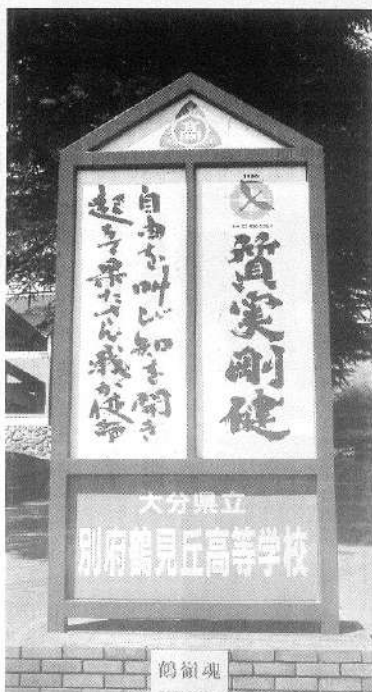 高
質実剛健
自由を叫び知を開き
起ちて果たさん我が使命
大分県立
別府鶴見丘高等学校
鶴嶺魂